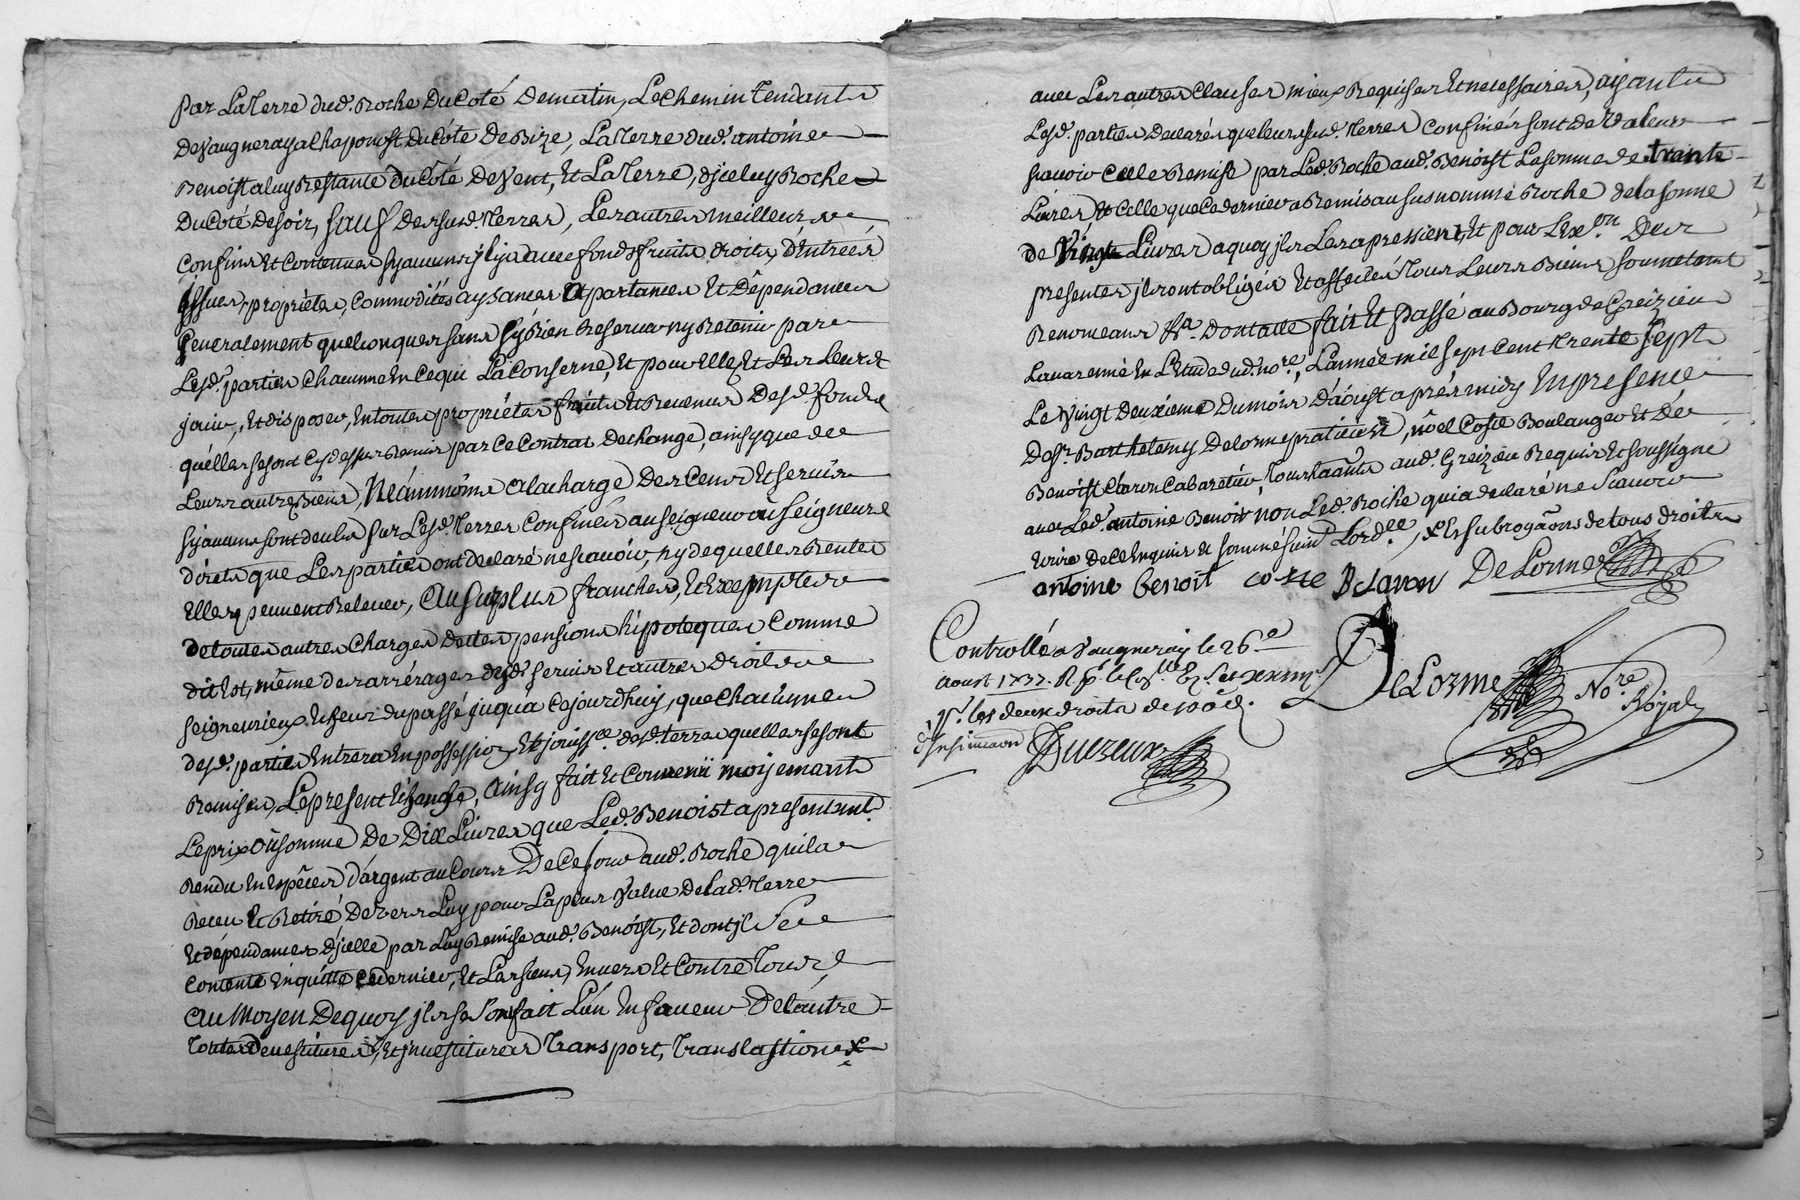 par La Terre dud. Roche Du Coté De matin, Le Chemin Tendant
De Vaugneray a Chaponost Du Côté De Bize, La Terre dud. antoine
Benoist a luy Restante du Coté De Vent, Et La Terre, djceluy Roche
Du Coté De soir, sauf Dessusd. Terres, Les autres meilleurs
Confins Et Contenues sy aucuns jl y a avec fonds fruits droits, d'Entrées
jssues, propriétes, Commodités aysances Apartances Et Dêpendances
généralement quelconques sans sy Rien Reserver ny Retenir par
Lesd. parties Chacunne En Ce qui La Conserne, Et pour Elles Et Les Leurs Et
jouir, Et disposer, En toutes propriétes fruits Et Revenus Desd. fonds
quélles se sont Cy dessus Remis par Ce Contrat Dechange, ainsy que de
Leurs autres Biens, Néanmoins a la charge Des Cens Et servis
sy aucuns sont deubs sur Lesd. Terres Confinées au seigneur ou seigneurs
dirêts que Les parties ont declaré ne scavoir, ny de quelles Rentes
Elles peuvent Relever, au surplus franches, Et Exemptes
de toutes autres Charges dettes pensions hipoteques Comme
dit Est, même des arrérages desd. servis Et autres Droits
seigneuriaux Echeus du passé juqua Cejourdhuy, que Chacunne
desd. parties Entrera En possession Et jouissce desd. terres quelles se sont
Remises, Le present Echange, ainsy fait Et Convenu moyemant
Le prix Ou somme De Dix Livres que Led. Benoist a presentemt.
Rendu En Espêces d'argent au Cours De Ce jour aud. Roche qui la
Receu Et Retiré Devers Luy pour La plus value De lad. Terre
Et dépendances djcelle par Luy Remise aud. Benoist, Et dont jl se
Contente En quitte Ce dernier, Et Les siens, Envers Et Contre Tous,
au Moyen De quoy jls se sont fait L'un En faveur De lautre
Toutes Devestitures, Et jnvestitures Transport, Translastion x
avec Les autres Clauses mieux Requises Et necessaires, ayants
Lesd. parties Declarés que leursusd. Terres Confinées sont de Valeur
scavoir Celle Remise par Led. Roche aud. Benoist La somme de trante
Livres Et Celle que Ce dernier a Remis au susnommé Roche de la somme
de Vingt Livres a quoy jls Les apressient, Et pour L'Exon. Des
presentes jls ont obligés Et affectés Tous Leurs Biens soumetant
Renomçant &a. Dont acte fait Et Passé au Bourg de Greizieu
Lavarenne En L'Etude dud. nore., L'année mil sept Cent trente sept
Le Vingt Deuxieme Du mois D'aoust aprés midy En presence
De sr. Barthelemy Delorme praticien, nöel Coste Boulanger Et De
Benoist Claron Cabaretier, Tous haants aud. Greizieu Requis Et soussigné
avec Led. antoine Benoist non Led. Roche qui a declaré ne scavoir
Ecrire de Ce Enquis Et sommé suivt Lordce, x Et subrogãons de tous droits
antoine benoit coste B claron DeLorme
Controllé a Vaugneray le 26e
aoust 1737. R
pr. les deux droits de
d'insinuaon
Duezeux
DeLorme Nore. Royal